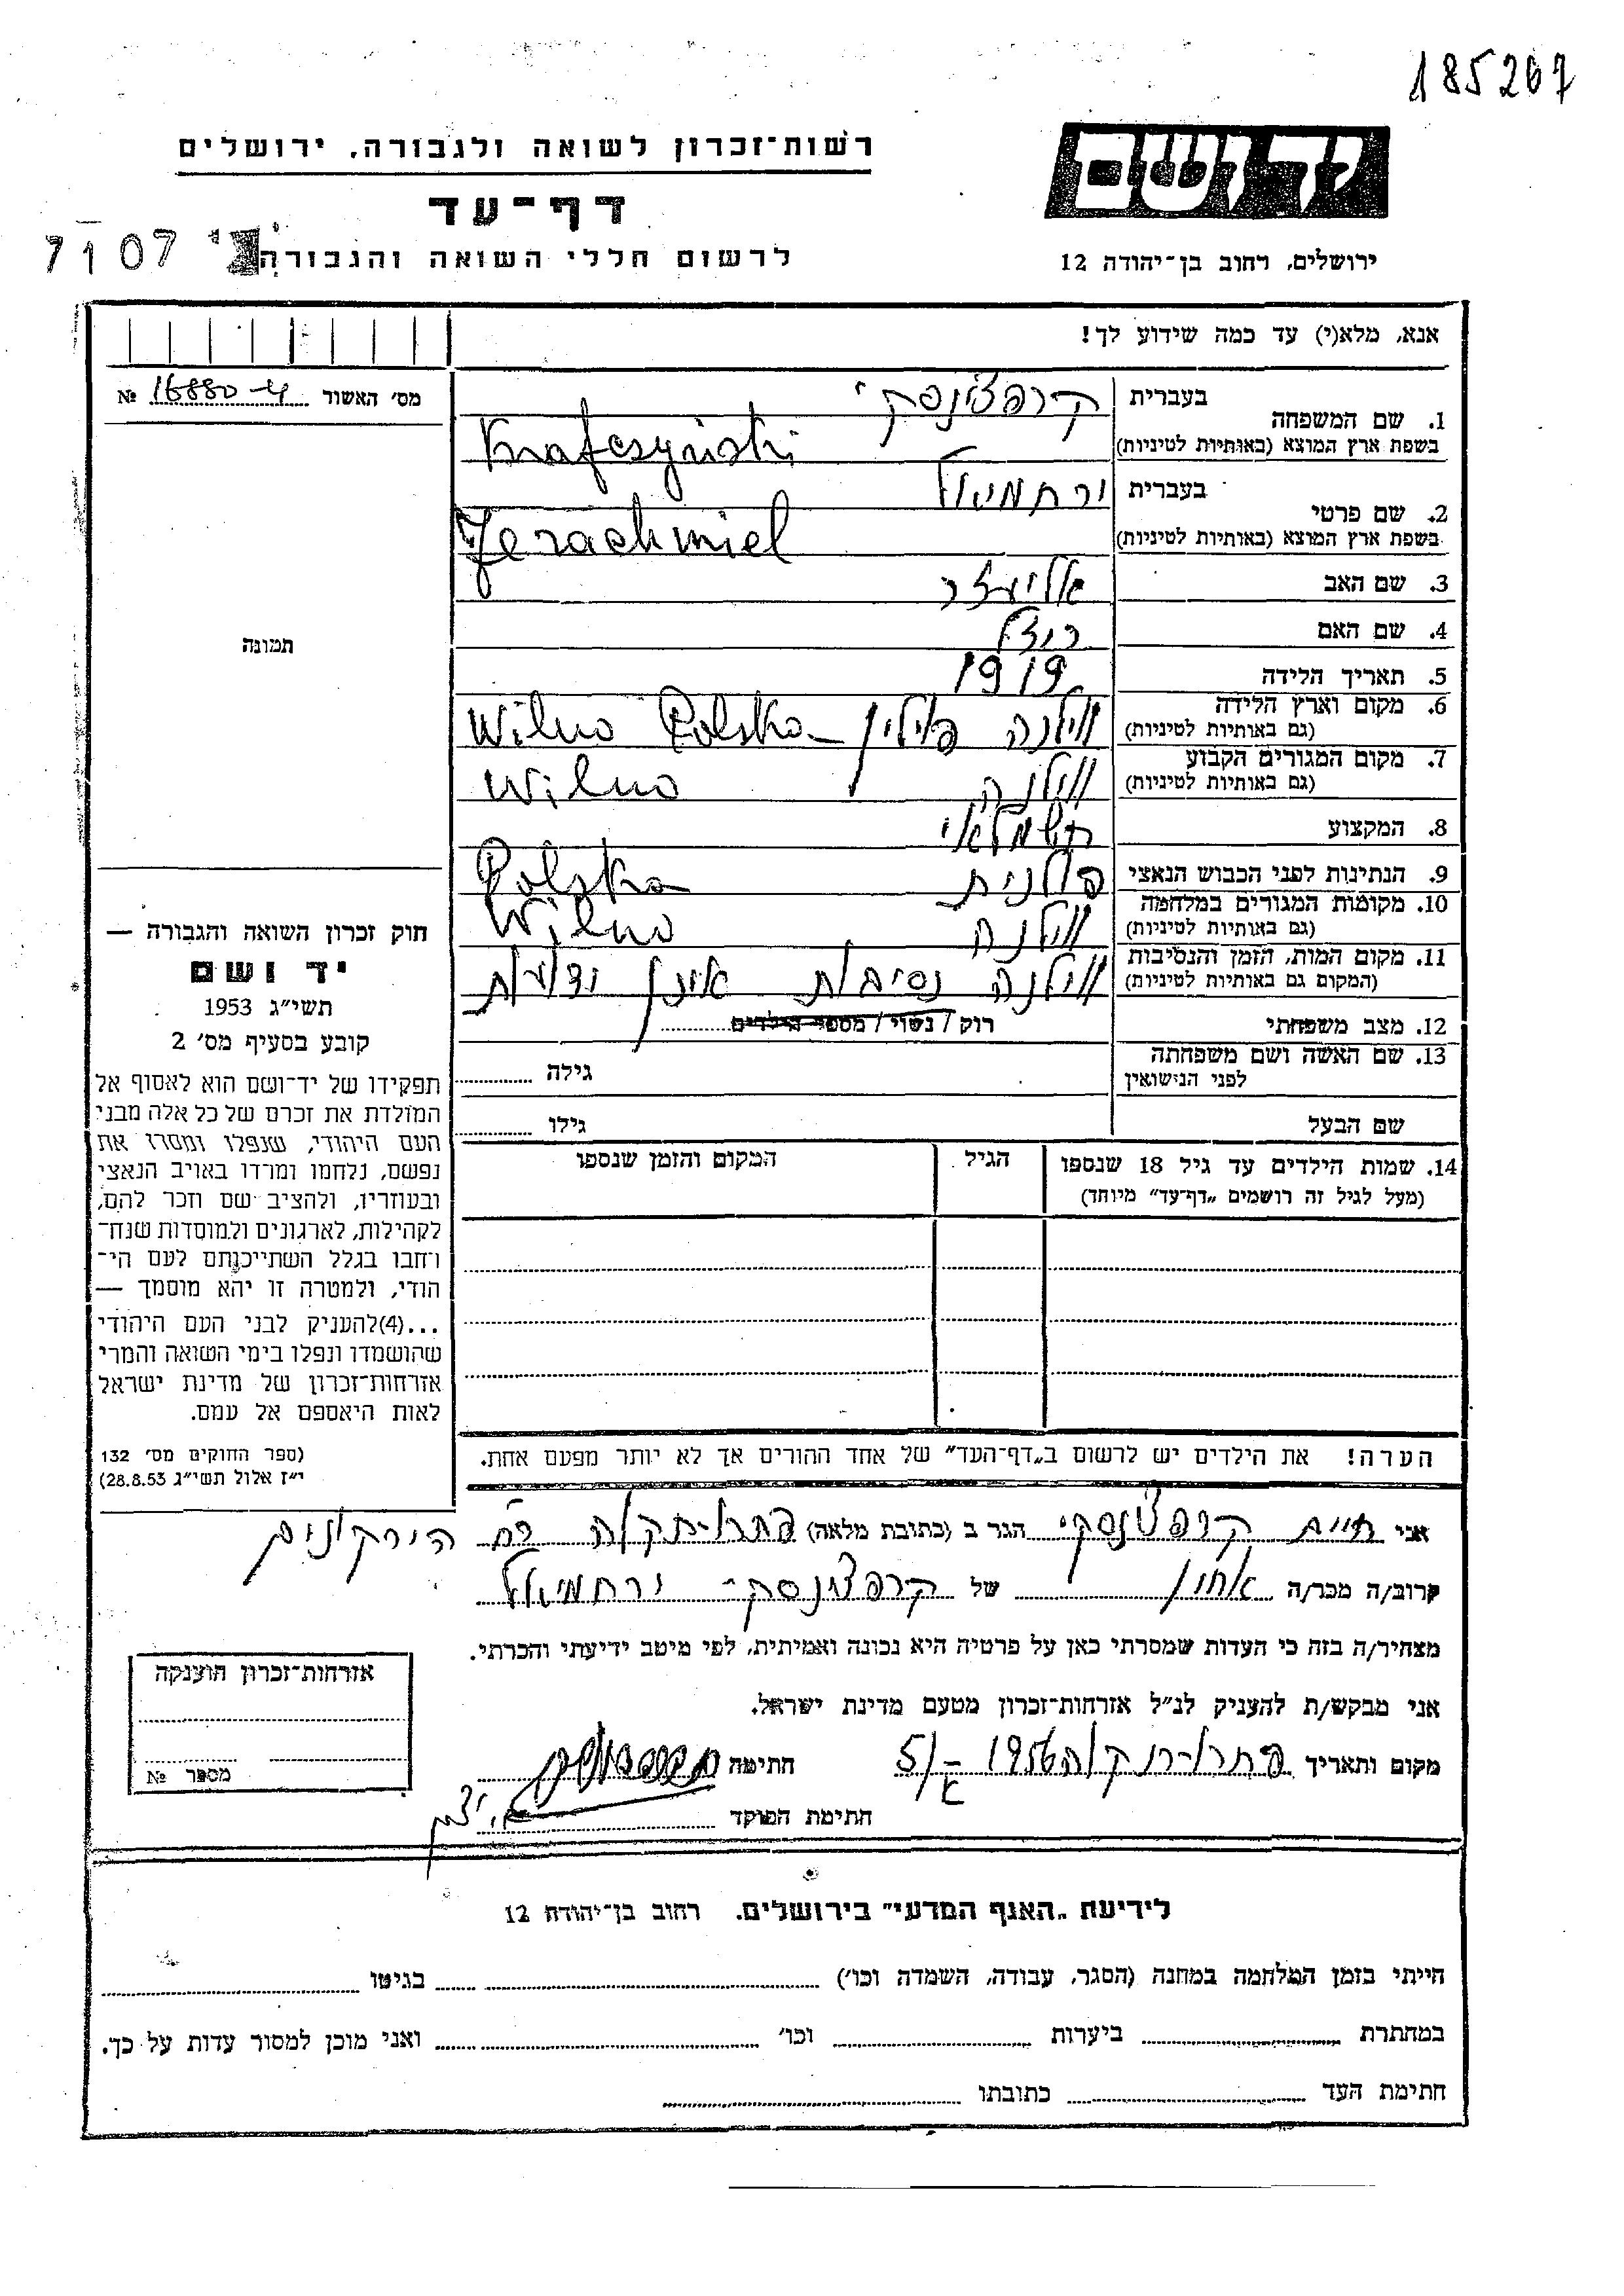 185267
יד ושם
רשות־זכרון לשואה ולגבורה, ירושלים
דף־עד
ירושלים, רחוב בן־יהודה 12
לרשום חללי השואה והגבורה
7107
אנא, מלא(י) עד כמה שידוע לך!
מס׳ האשור № 16880-4
1. שם המשפחה
בעברית קרפצ'ינסקי
בשפת ארץ המוצא (באותיות לטיניות) Krafczyński
2. שם פרטי
בעברית ירחמיאל
בשפת ארץ המוצא (באותיות לטיניות) Jerachmiel
3. שם האב אליעזר
4. שם האם
5. תאריך הלידה 1919
6. מקום וארץ הלידה (גם באותיות לטיניות) ווילנה פולין – Wilno Polska
7. מקום המגורים הקבוע (גם באותיות לטיניות) ווילנה Wilno
8. המקצוע חשמלאי
9. הנתינות לפני הכבוש הנאצי פולנית Polska
10. מקומות המגורים במלחמה (גם באותיות לטיניות) ווילנה Wilno
11. מקום המות, הזמן והנסיבות (המקום גם באותיות לטיניות) ווילנה נסיבות אינן ידועות
12. מצב משפחתי רוק / נשוי / מספר הילדים
13. שם האשה ושם משפחתה לפני הנישואין גילה
שם הבעל גילו
14. שמות הילדים עד גיל 18 שנספו
(מעל לגיל זה רושמים „דף־עד״ מיוחד)
הגיל
המקום והזמן שנספו
הערה! את הילדים יש לרשום ב„דף־העד״ של אחד ההורים אך לא יותר מפעם אחת.
תמונה
חוק זכרון השואה והגבורה —
יד ושם
תשי״ג 1953
קובע בסעיף מס׳ 2
תפקידו של יד־ושם הוא לאסוף אל
המולדת את זכרם של כל אלה מבני
העם היהודי, שנפלו ומסרו את
נפשם, נלחמו ומרדו באויב הנאצי
ובעוזריו, ולהציב שם וזכר להם,
לקהילות, לארגונים ולמוסדות שנח־
רבו בגלל השתייכותם לעם הי־
הודי, ולמטרה זו יהא מוסמך —
...(4) להעניק לבני העם היהודי
שהושמדו ונפלו בימי השואה והמרי
אזרחות־זכרון של מדינת ישראל
לאות היאספם אל עמם.
(ספר החוקים מס׳ 132
י״ז אלול תשי״ג 28.8.53)
אני חיים קרפצ'ינסקי הגר ב (כתובת מלאה) פתח-תקוה רח הירקונים
קרוב/ה מכר/ה אחיו של קרפצ'ינסקי ירחמיאל
מצהיר/ה בזה כי העדות שמסרתי כאן על פרטיה היא נכונה ואמיתית, לפי מיטב ידיעתי והכרתי.
אני מבקש/ת להעניק לנ״ל אזרחות־זכרון מטעם מדינת ישראל.
מקום ותאריך פתח-תקוה 1956 חתימה
חתימת הפוקד
אזרחות־זכרון הוענקה
מספר №
לידיעת „האגף המדעי״ בירושלים. רחוב בן־יהודה 12
הייתי בזמן המלחמה במחנה (הסגר, עבודה, השמדה וכו׳) בגיטו
במחתרת ביערות וכו׳ ואני מוכן למסור עדות על כך.
חתימת העד כתובתו